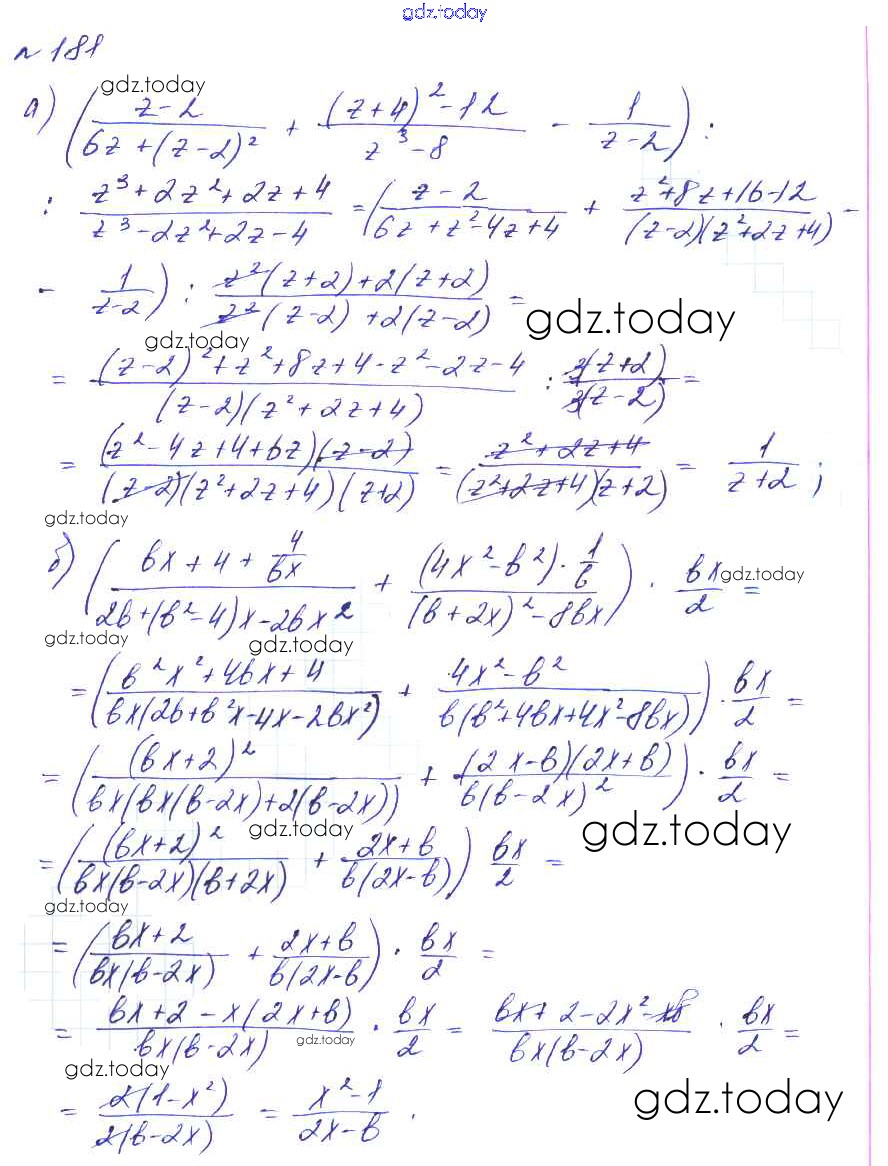 gdz.today
№ 181
gdz.today
а) ( (z-2)/(6z+(z-2)²) + ((z+4)²-12)/(z³-8) - 1/(z-2) ) :
: (z³+2z²+2z+4)/(z³-2z²+2z-4) = ( (z-2)/(6z+z²-4z+4) + (z²+8z+16-12)/((z-2)(z²+2z+4)) -
- 1/(z-2) ) : (z²(z+2)+2(z+2))/(z²(z-2)+2(z-2)) =
gdz.today
gdz.today
= ((z-2)²+z²+8z+4-z²-2z-4)/((z-2)(z²+2z+4)) : (z+2)/(z-2) =
= ((z²-4z+4+6z)(z-2))/((z-2)(z²+2z+4)(z+2)) = (z²+2z+4)/((z²+2z+4)(z+2)) = 1/(z+2) ;
gdz.today
б) ( (bx+4+4/bx)/(2b+(b²-4)x-2bx²) + ((4x²-b²)·1/b)/((b+2x)²-8bx) ) · bx/2 =
gdz.today
gdz.today
gdz.today
= ( (b²x²+4bx+4)/(bx(2b+b²x-4x-2bx²)) + (4x²-b²)/(b(b²+4bx+4x²-8bx)) ) · bx/2 =
= ( (bx+2)²/(bx(bx(b-2x)+2(b-2x))) + ((2x-b)(2x+b))/(b(b-2x)²) ) · bx/2 =
gdz.today
gdz.today
= ( (bx+2)²/(bx(b-2x)(b+2x)) + (2x+b)/(b(2x-b)) ) bx/2 =
gdz.today
= ( (bx+2)/(bx(b-2x)) + (2x+b)/(b(2x-b)) ) · bx/2 =
= (bx+2-x(2x+b))/(bx(b-2x)) · bx/2 = (bx+2-2x²-xb)/(bx(b-2x)) · bx/2 =
gdz.today
gdz.today
gdz.today
= (2(1-x²))/(2(b-2x)) = (x²-1)/(2x-b) .